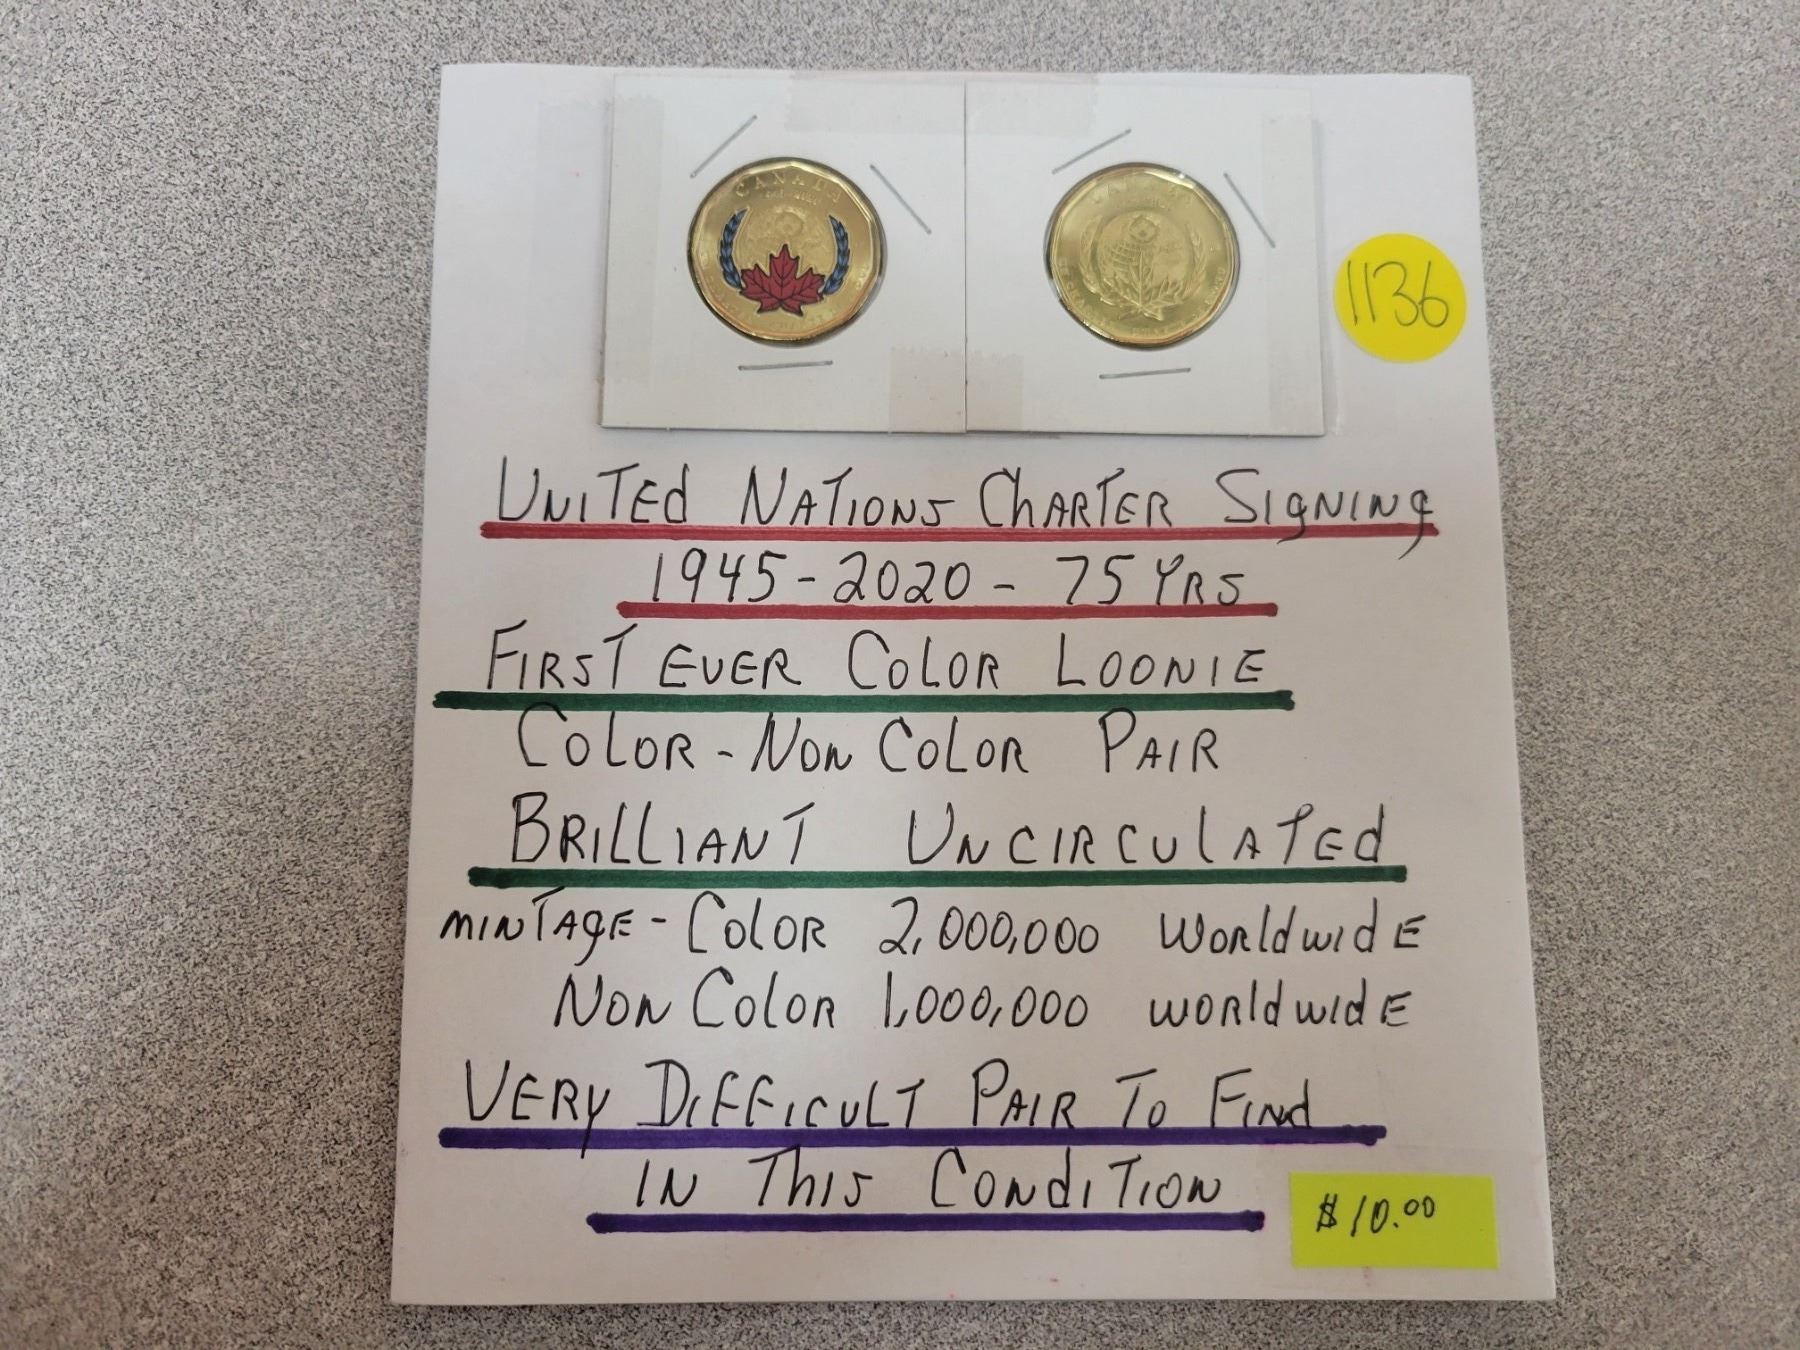 CANADA
CANADA
1136
UNITEd NATIONS ChARTER SIgNINg
1945-2020- 75 YRS
FIRST EVER COLOR LOONIE
COLOR-NON COLOR PAIR
BRILLIANT UNCIRCULATEd
MINTAgE- COLOR 2,000,000 WORldwIdE
NON COLOR 1,000,000 WORldwIdE
VERY DIFFICULT PAIR TO FINd
IN ThIS CONdITION
$10.00